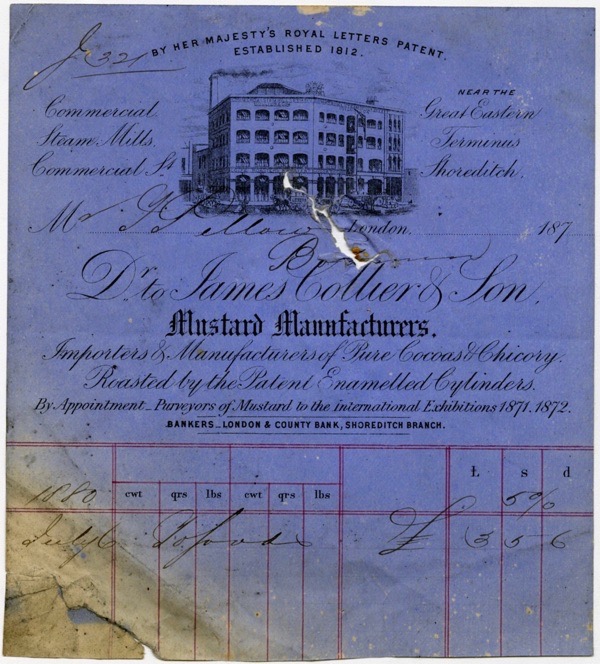 J 321
BY HER MAJESTY'S ROYAL LETTERS PATENT.
ESTABLISHED 1812.
Commercial
Steam Mills.
Commercial St
NEAR THE
Great Eastern
Terminus
Shoreditch.
Mr London. 187
Dr. to James Collier & Son,
Mustard Manufacturers.
Importers & Manufacturers of Pure Cocoas & Chicory.
Roasted by the Patent Enamelled Cylinders.
By Appointment _ Purveyors of Mustard to the International Exhibitions 1871.1872.
BANKERS _ LONDON & COUNTY BANK, SHOREDITCH BRANCH.
£ s d
1880 cwt qrs lbs cwt qrs lbs 5%
July 6 To goods £ 3 5 6